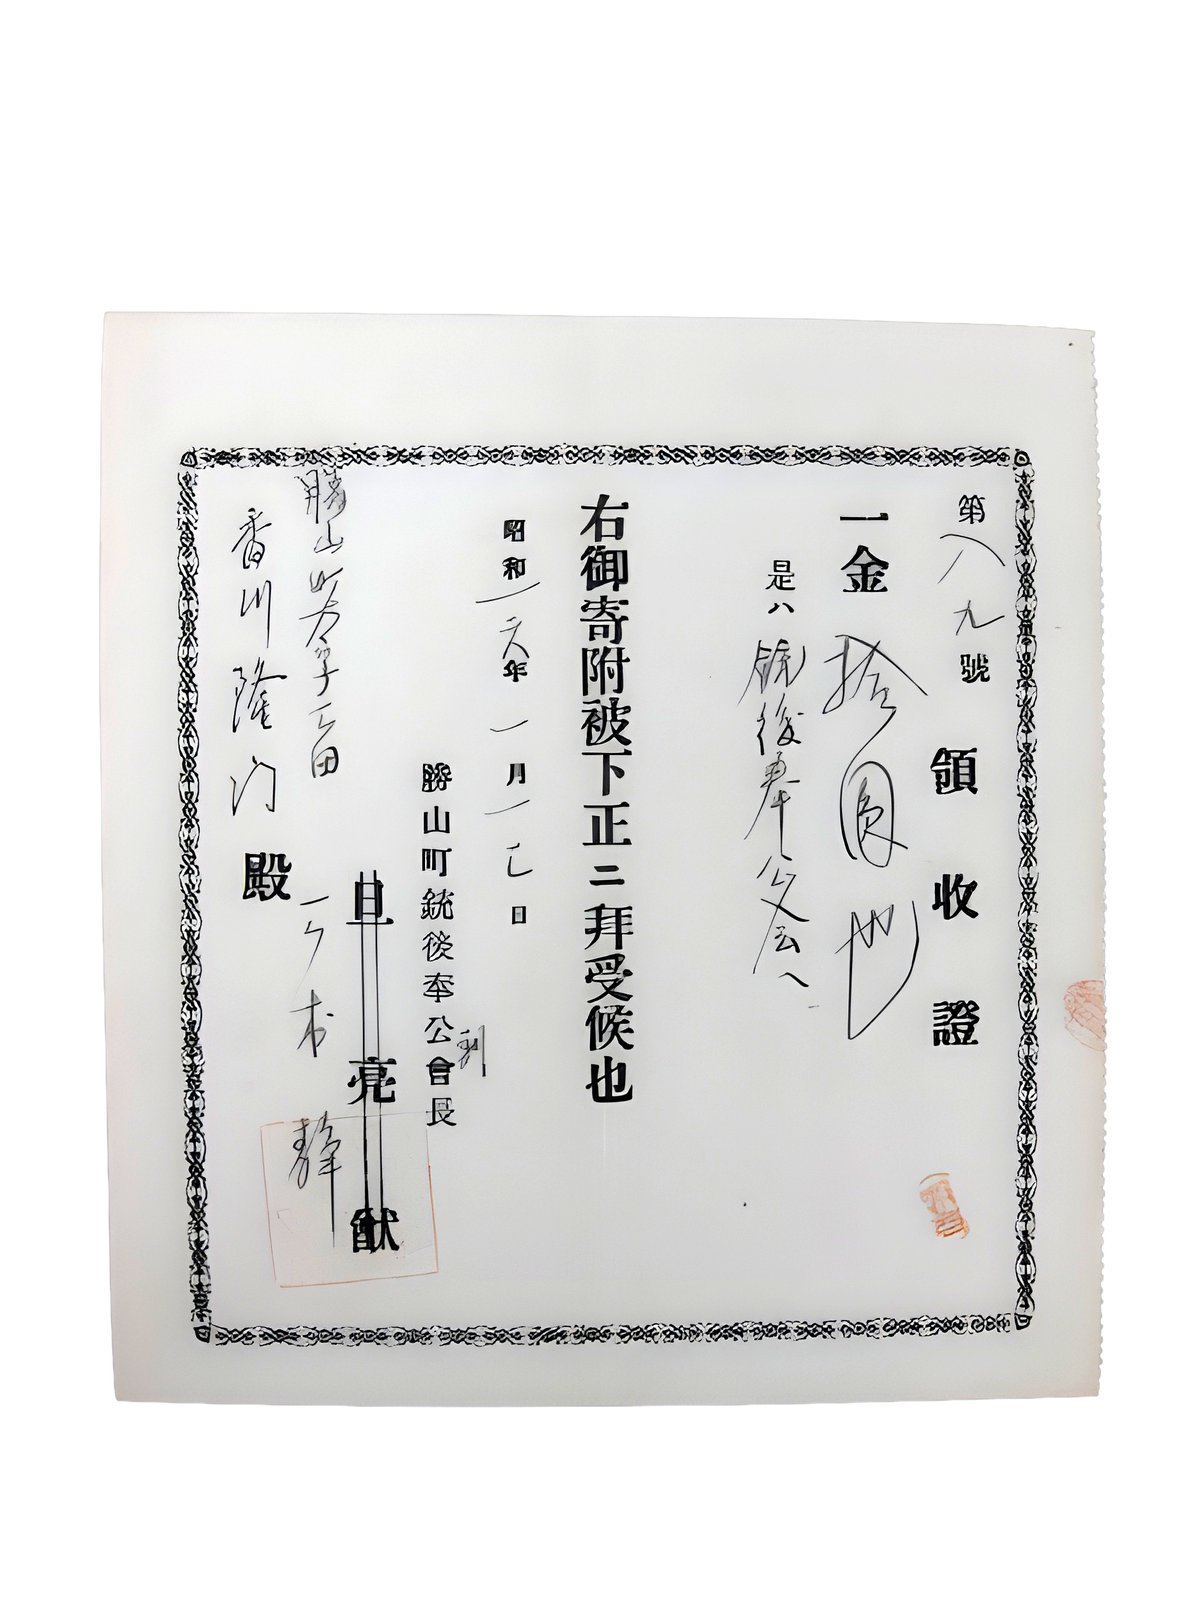 第八九號
領收證
一金拾圓也
是ハ銃後奉公会へ
右御寄附被下正ニ拜受候也
昭和一六年一月一七日
勝山町銃後奉公會長
旦亮猷
静
勝山町
香川隆门殿